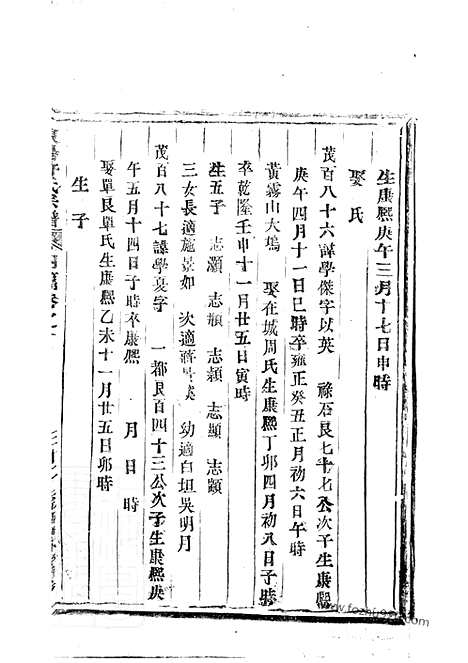 生康熙庚午三月十七日申時
娶 氏
茂百八十六諱學傑字以英 祿石艮七十七公次子生康熙
庚午四月十一日巳時卒雍正癸丑正月初六日午時
黃霧山大塢 娶在城周氏生康熙丁卯四月初八日子時
卒乾隆壬申十一月廿五日寅時
生五子 志灝 志顥 志穎 志顯 志顓
三女長適施景如 次適蔣 幼適白坦吳明月
茂百八十七諱學夏字 一都艮百四十三公次子生康熙庚
午五月十四日子時卒康熙 月 日 時
娶單艮單氏生康熙乙未十一月廿五日卯時
生 子
氏宗譜